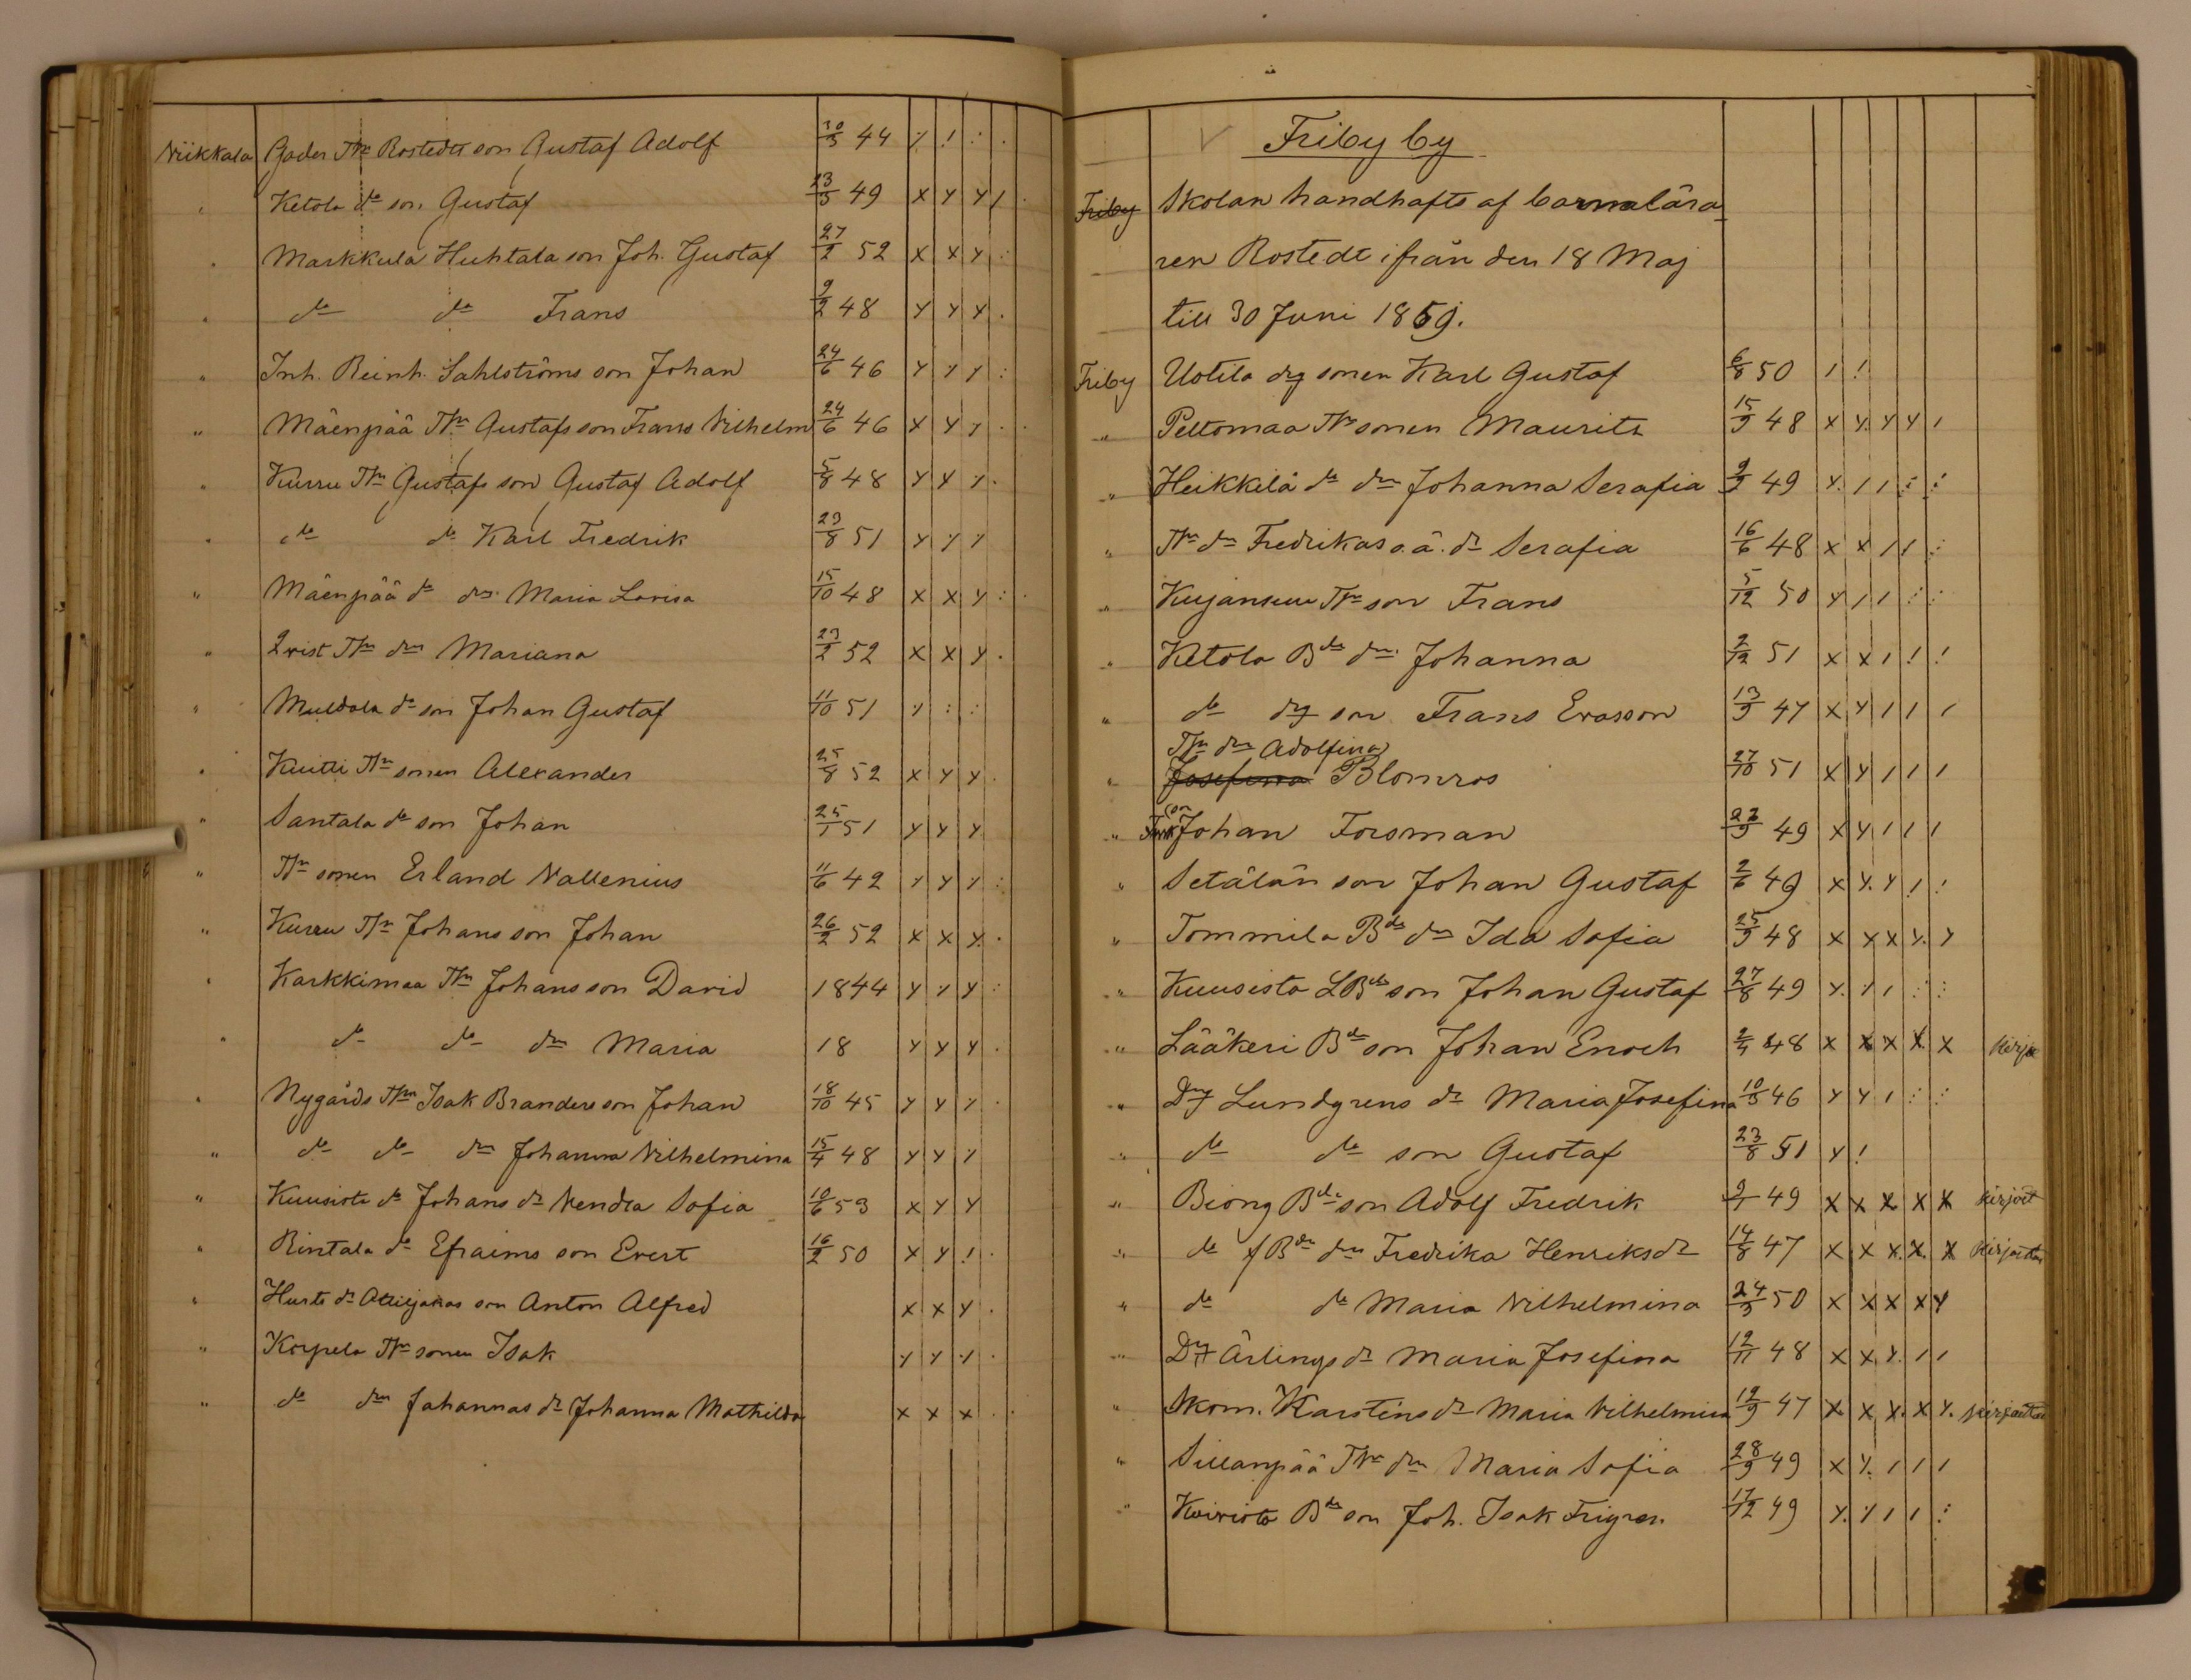 Niikkala Gader Thr Rostedts son Gustaf Adolf 30/3 44
" Ketola do son Gustaf 23/3 49
" Markkula Huhtala son Joh. Gustaf 27/2 52
" do do Frans 9/2 48
" Inh. Reinh. Sahlströms son Johan 24/6 46
" Mäenpää Thr Gustafs son Frans Vilhelm 24/6 46
" Kurru Thr Gustafs son Gustaf Adolf 5/8 48
" do do Karl Fredrik 23/8 51
" Mäenpää do drs Maria Lovisa 15/10 48
" Qvist Thr drn Mariana 23/2 52
" Muldola do son Johan Gustaf 11/10 51
" Kuitti Thr sonen Alexander 25/8 52
" Santala do son Johan 25/1 51
" Thr sonen Erland Vallenius 11/6 42
" Kurru Thr Johans son Johan 26/2 52
" Karkkimaa Thr Johans son David 1844
" do do drn Maria 18
" Nygårds Thn Isak Branders son Johan 18/10 45
" do do drn Johanna Vilhelmina 15/4 48
" Kuusisto do Johans dr Vendla Sofia 10/6 53
" Rintala do Efraims son Evert 16/2 50
" do son Anton Alfred
" Korpela Thr sonen Isak
" do drn Johannas dr Johanna Mathilda
Friby by
Friby Skolan handhafts af barnalära
ren Rostedt ifrån den 18 Maj
till 30 Juni 1859.
Friby Uotila drg sonen Karl Gustaf 6/8 50
" Peltomaa Thr sonen Maurits 15/9 48
" Heikkilä do drn Johanna Serafia 9/9 49
" Thr drn Fredrikas o.ä. dr Serafia 16/6 48
" Kujansuu Thr son Frans 5/12 50
" Ketola Bds drn Johanna 2/12 51
" do drg son Frans Ersson 13/9 47
Thr drn Adolfina
" Josefina Blomros 27/10 51
son
" Johan Forsman 22/9 49
" Setälän son Johan Gustaf 2/6 49
" Tommila Bds drn Ida Sofia 25/9 48
" Kuusisto LBds son Johan Gustaf 27/8 49
" Lääkeri Bds son Johan Enoch 2/4 48 kirja
" Drg Lundgrens dr Maria Josefina 10/3 46
" do do son Gustaf 23/8 51
" Biong Bds son Adolf Fredrik 2/1 49 kirjoit
" do f Bdn drn Fredrika Henriksdr 14/8 47 kirjoitta
" do do Maria Vilhelmina 24/3 50
" Drg Ärlings dr Maria Josefina 12/11 48
" Skom. Karstens dr Maria Vilhelmina 12/9 47 kirjoittaa
" Sillanpää Thr drn Maria Sofia 28/9 49
" Koivisto Bds son Joh. Isak Frigren 17/12 49